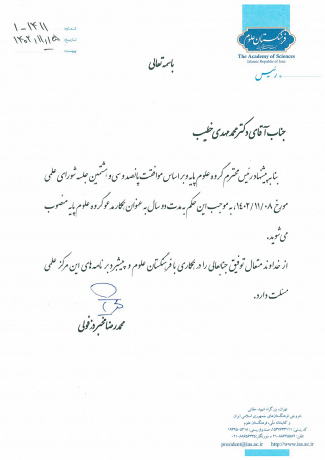 فرهنگستان علوم
The Academy of Sciences
Islamic Republic of Iran
رئیس
شماره
تاریخ ۱۴۰۲/۱۱/۱۵
پیوست
باسمه تعالی
جناب آقای دکتر محمد مهدی خطیب
بنا به پیشنهاد رئیس محترم گروه علوم پایه و بر اساس موافقت پانصد و سی و هشتمین جلسه شورای علمی
مورخ ۱۴۰۲/۱۱/۰۸، به موجب این حکم به مدت دو سال به عنوان همکار مدعو گروه علوم پایه منصوب
می‌شوید.
از خداوند متعال توفیق جنابعالی را در همکاری با فرهنگستان علوم و پیشبرد برنامه‌های این مرکز علمی
مسئلت دارد.
محمدرضا مخبر دزفولی
تهران، بزرگراه شهید حقانی
خروجی فرهنگستان‌های جمهوری اسلامی ایران
و کتابخانه ملی، فرهنگستان علوم
president@ias.ac.ir http://www.ias.ac.ir